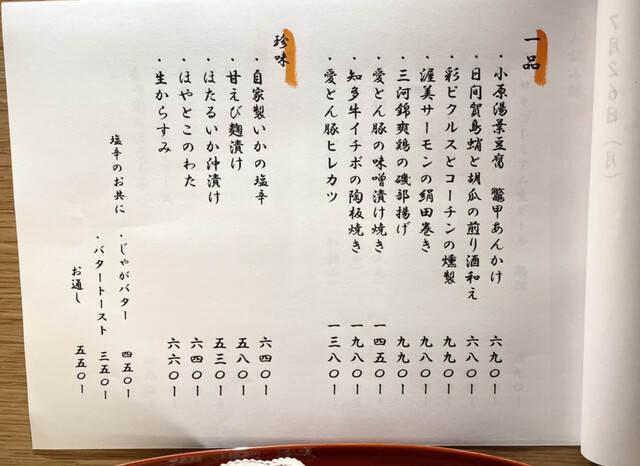 7月26日（月）
一品
・小原湯葉豆腐　鼈甲あんかけ　六九〇ー
・日間賀島蛸と胡瓜の煎り酒和え　六八〇ー
・彩ピクルスとコーチンの燻製　九九〇ー
・渥美サーモンの絹田巻き　九八〇ー
・三河錦爽鶏の磯部揚げ　九九〇ー
・愛とん豚の味噌漬け焼き　一四五〇ー
・知多牛イチボの陶板焼き　一九八〇ー
・愛とん豚ヒレカツ　一三八〇ー
珍味
・自家製いかの塩辛　六四〇ー
・甘えび麹漬け　五八〇ー
・ほたるいか沖漬け　五三〇ー
・ほやとこのわた　六四〇ー
・生からすみ　六六〇ー
塩辛のお共に
・じゃがバター　四五〇ー
・バタートースト　三五〇ー
お通し　五五〇ー